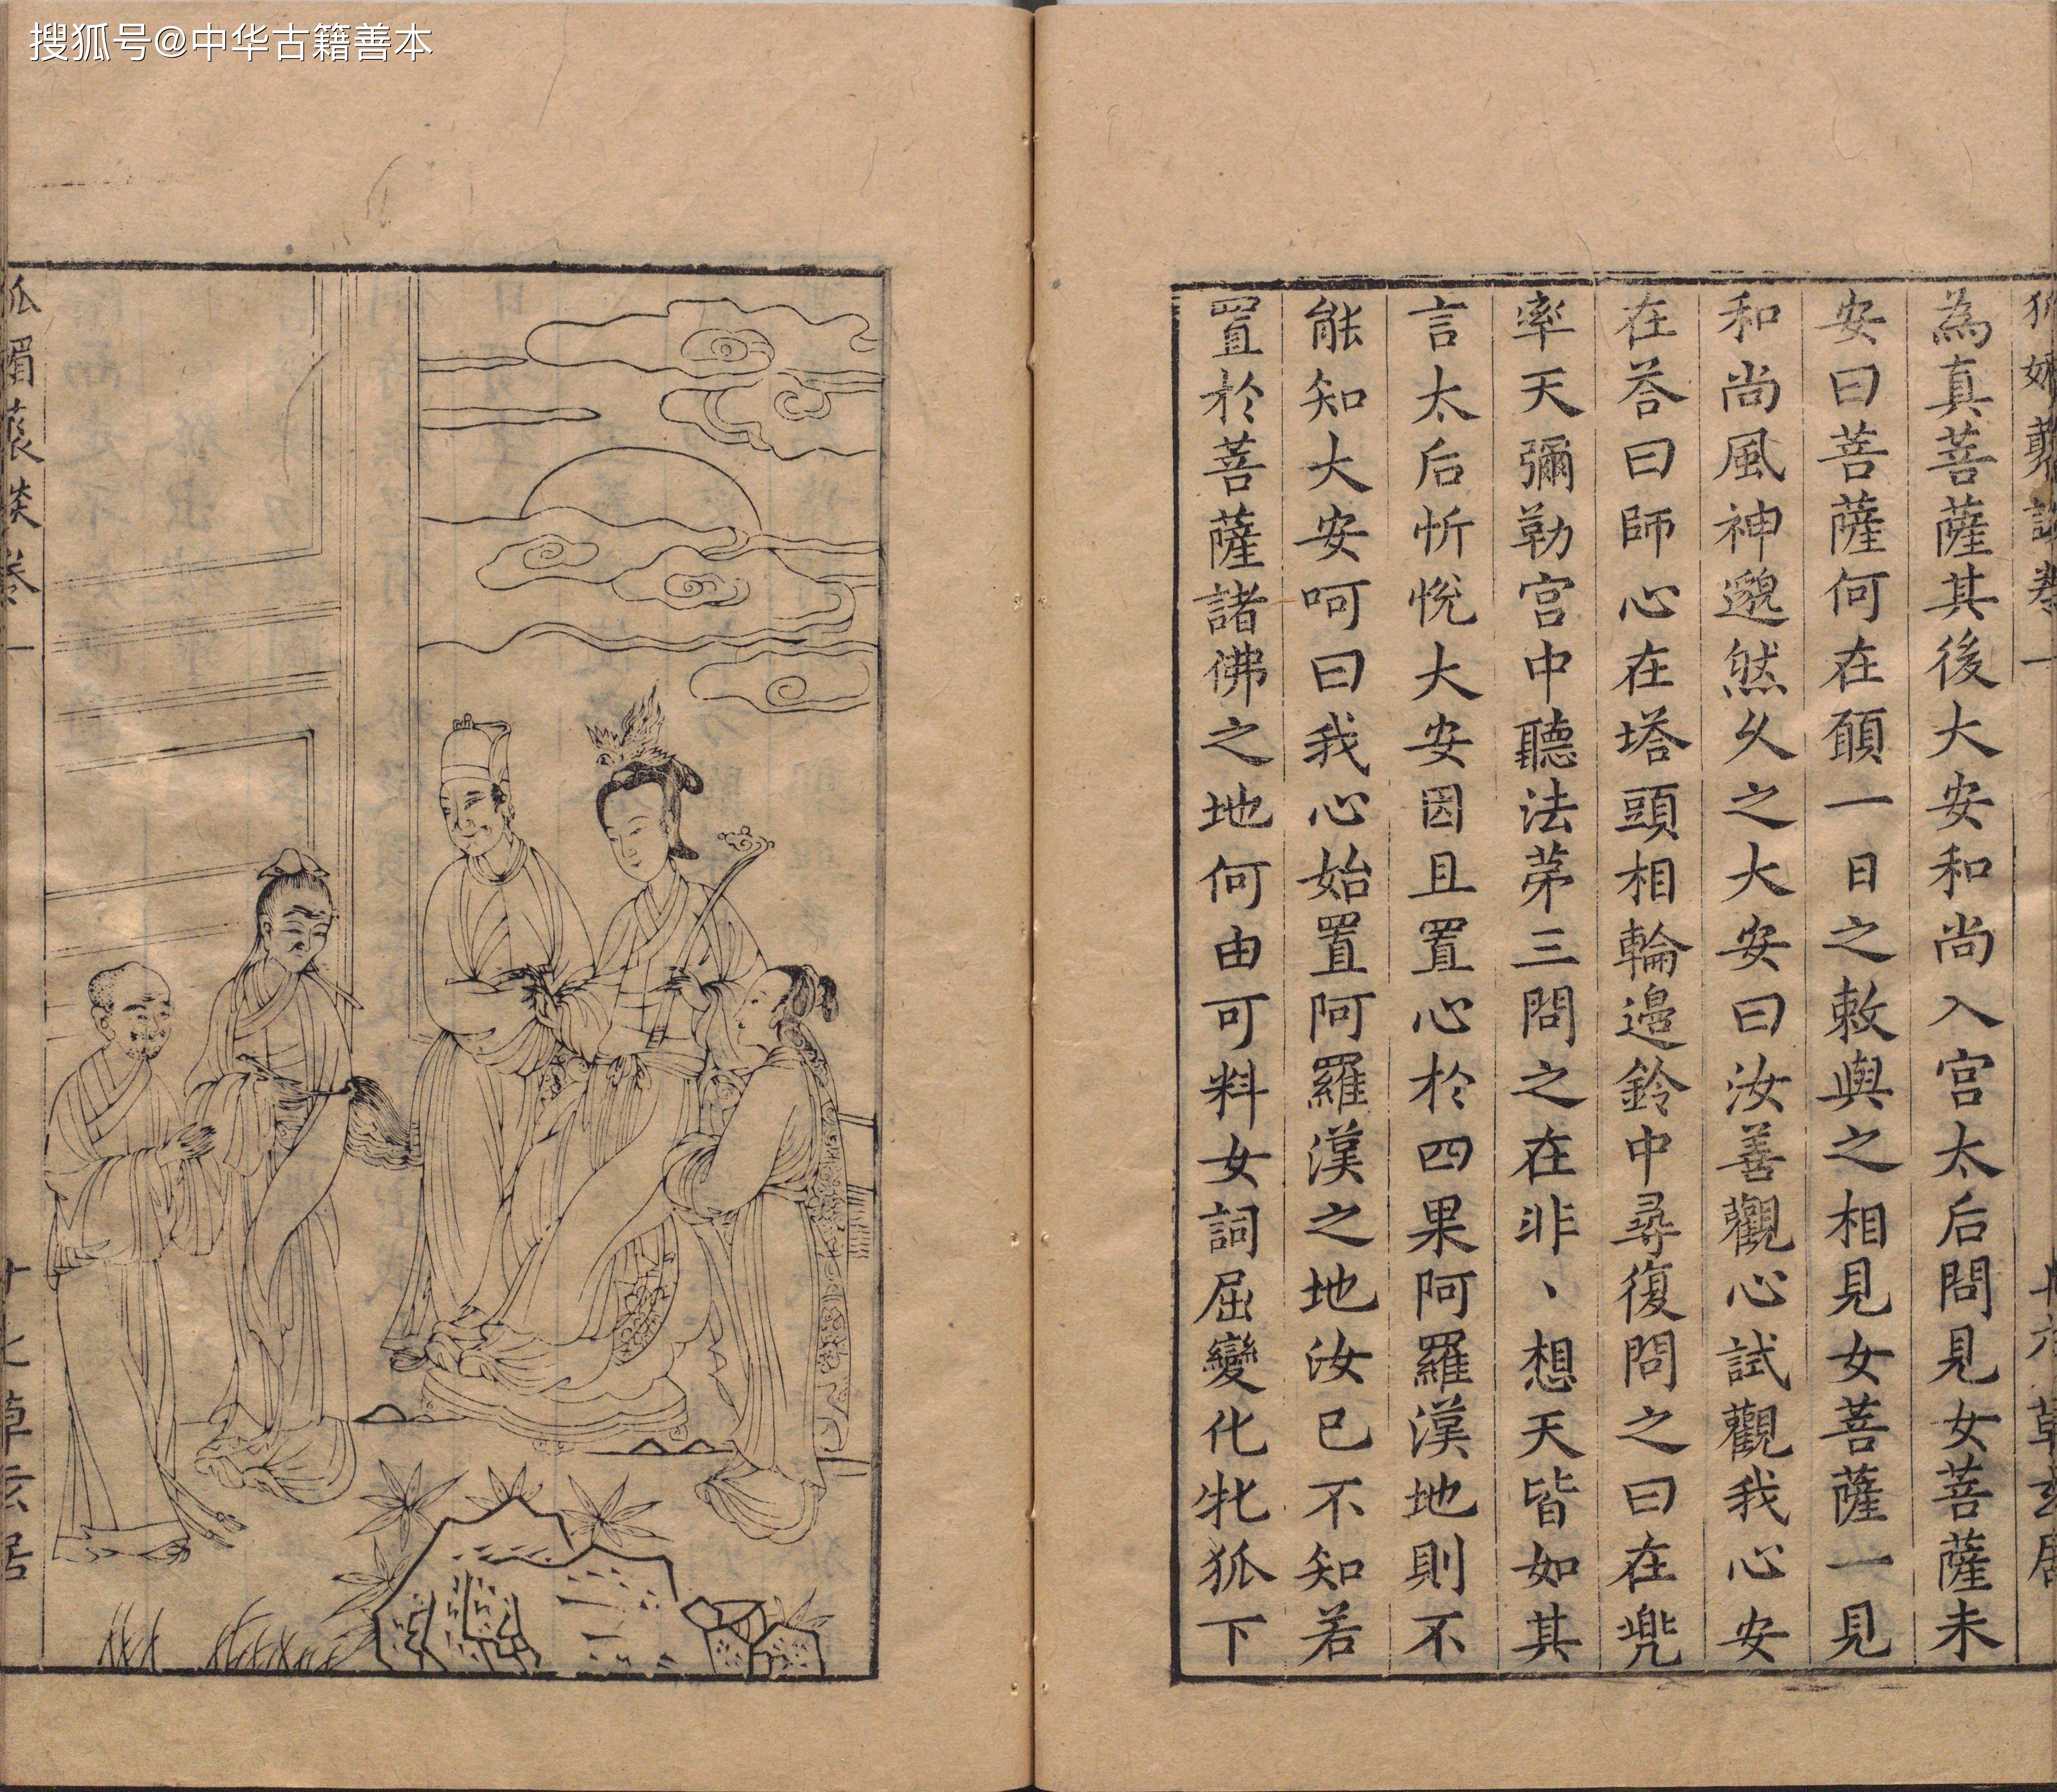 搜狐号@中华古籍善本
狐媚藂談卷一
草玄居
為真菩薩其後大安和尚入宮太后問見女菩薩未
安曰菩薩何在願一日之敕與之相見女菩薩一見
和尚風神邈然久之大安曰汝善觀心試觀我心安
在荅曰師心在塔頭相輪邉鈴中尋復問之曰在兠
率天彌勒宮中聽法苐三問之在非、想天皆如其
言太后忻悅大安因且置心於四果阿羅漢地則不
能知大安呵曰我心始置阿羅漢之地汝已不知若
置於菩薩諸佛之地何由可料女詞屈變化牝狐下
狐媚藂談卷一
十七草玄居